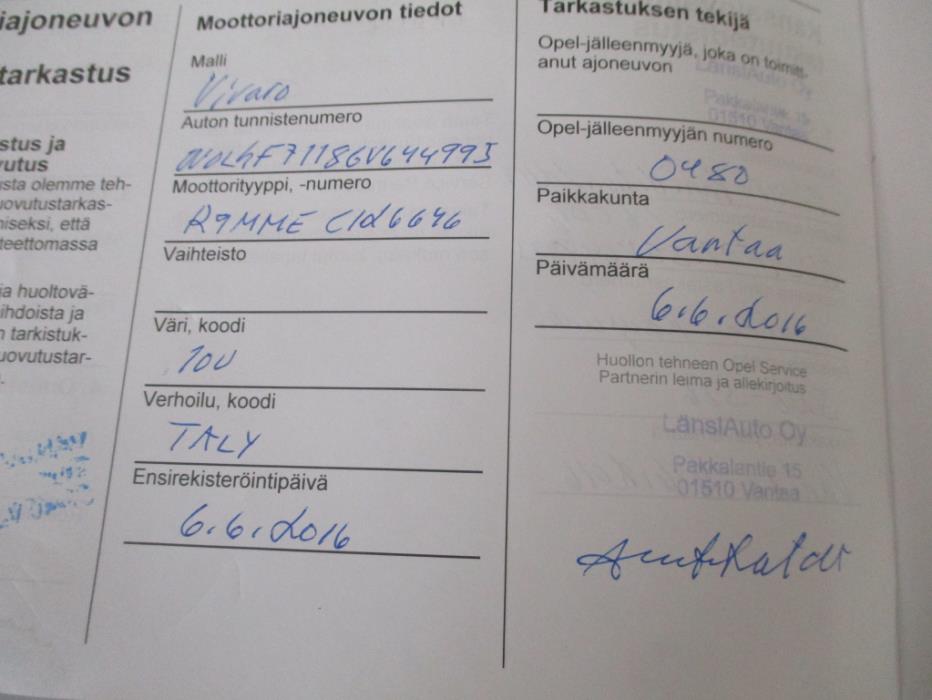 iajoneuvon
tarkastus
stus ja
vutus
usta olemme teh-
uovutustarkas-
niseksi, että
teettomassa
ja huoltovä-
ihdoista ja
n tarkistuk-
uovutustar-
Moottoriajoneuvon tiedot
Malli
Vivaro
Auton tunnistenumero
Moottorityyppi, -numero
R9MME C126646
Vaihteisto
Väri, koodi
10U
Verhoilu, koodi
TALY
Ensirekisteröintipäivä
6.6.2016
Tarkastuksen tekijä
Opel-jälleenmyyjä, joka on toimitt.
anut ajoneuvon
LänsiAuto Oy
Pakkalantie 15
01510 Vantaa
Opel-jälleenmyyjän numero
0480
Paikkakunta
Vantaa
Päivämäärä
6.6.2016
Huollon tehneen Opel Service
Partnerin leima ja allekirjoitus
LänsiAuto Oy
Pakkalantie 15
01510 Vantaa